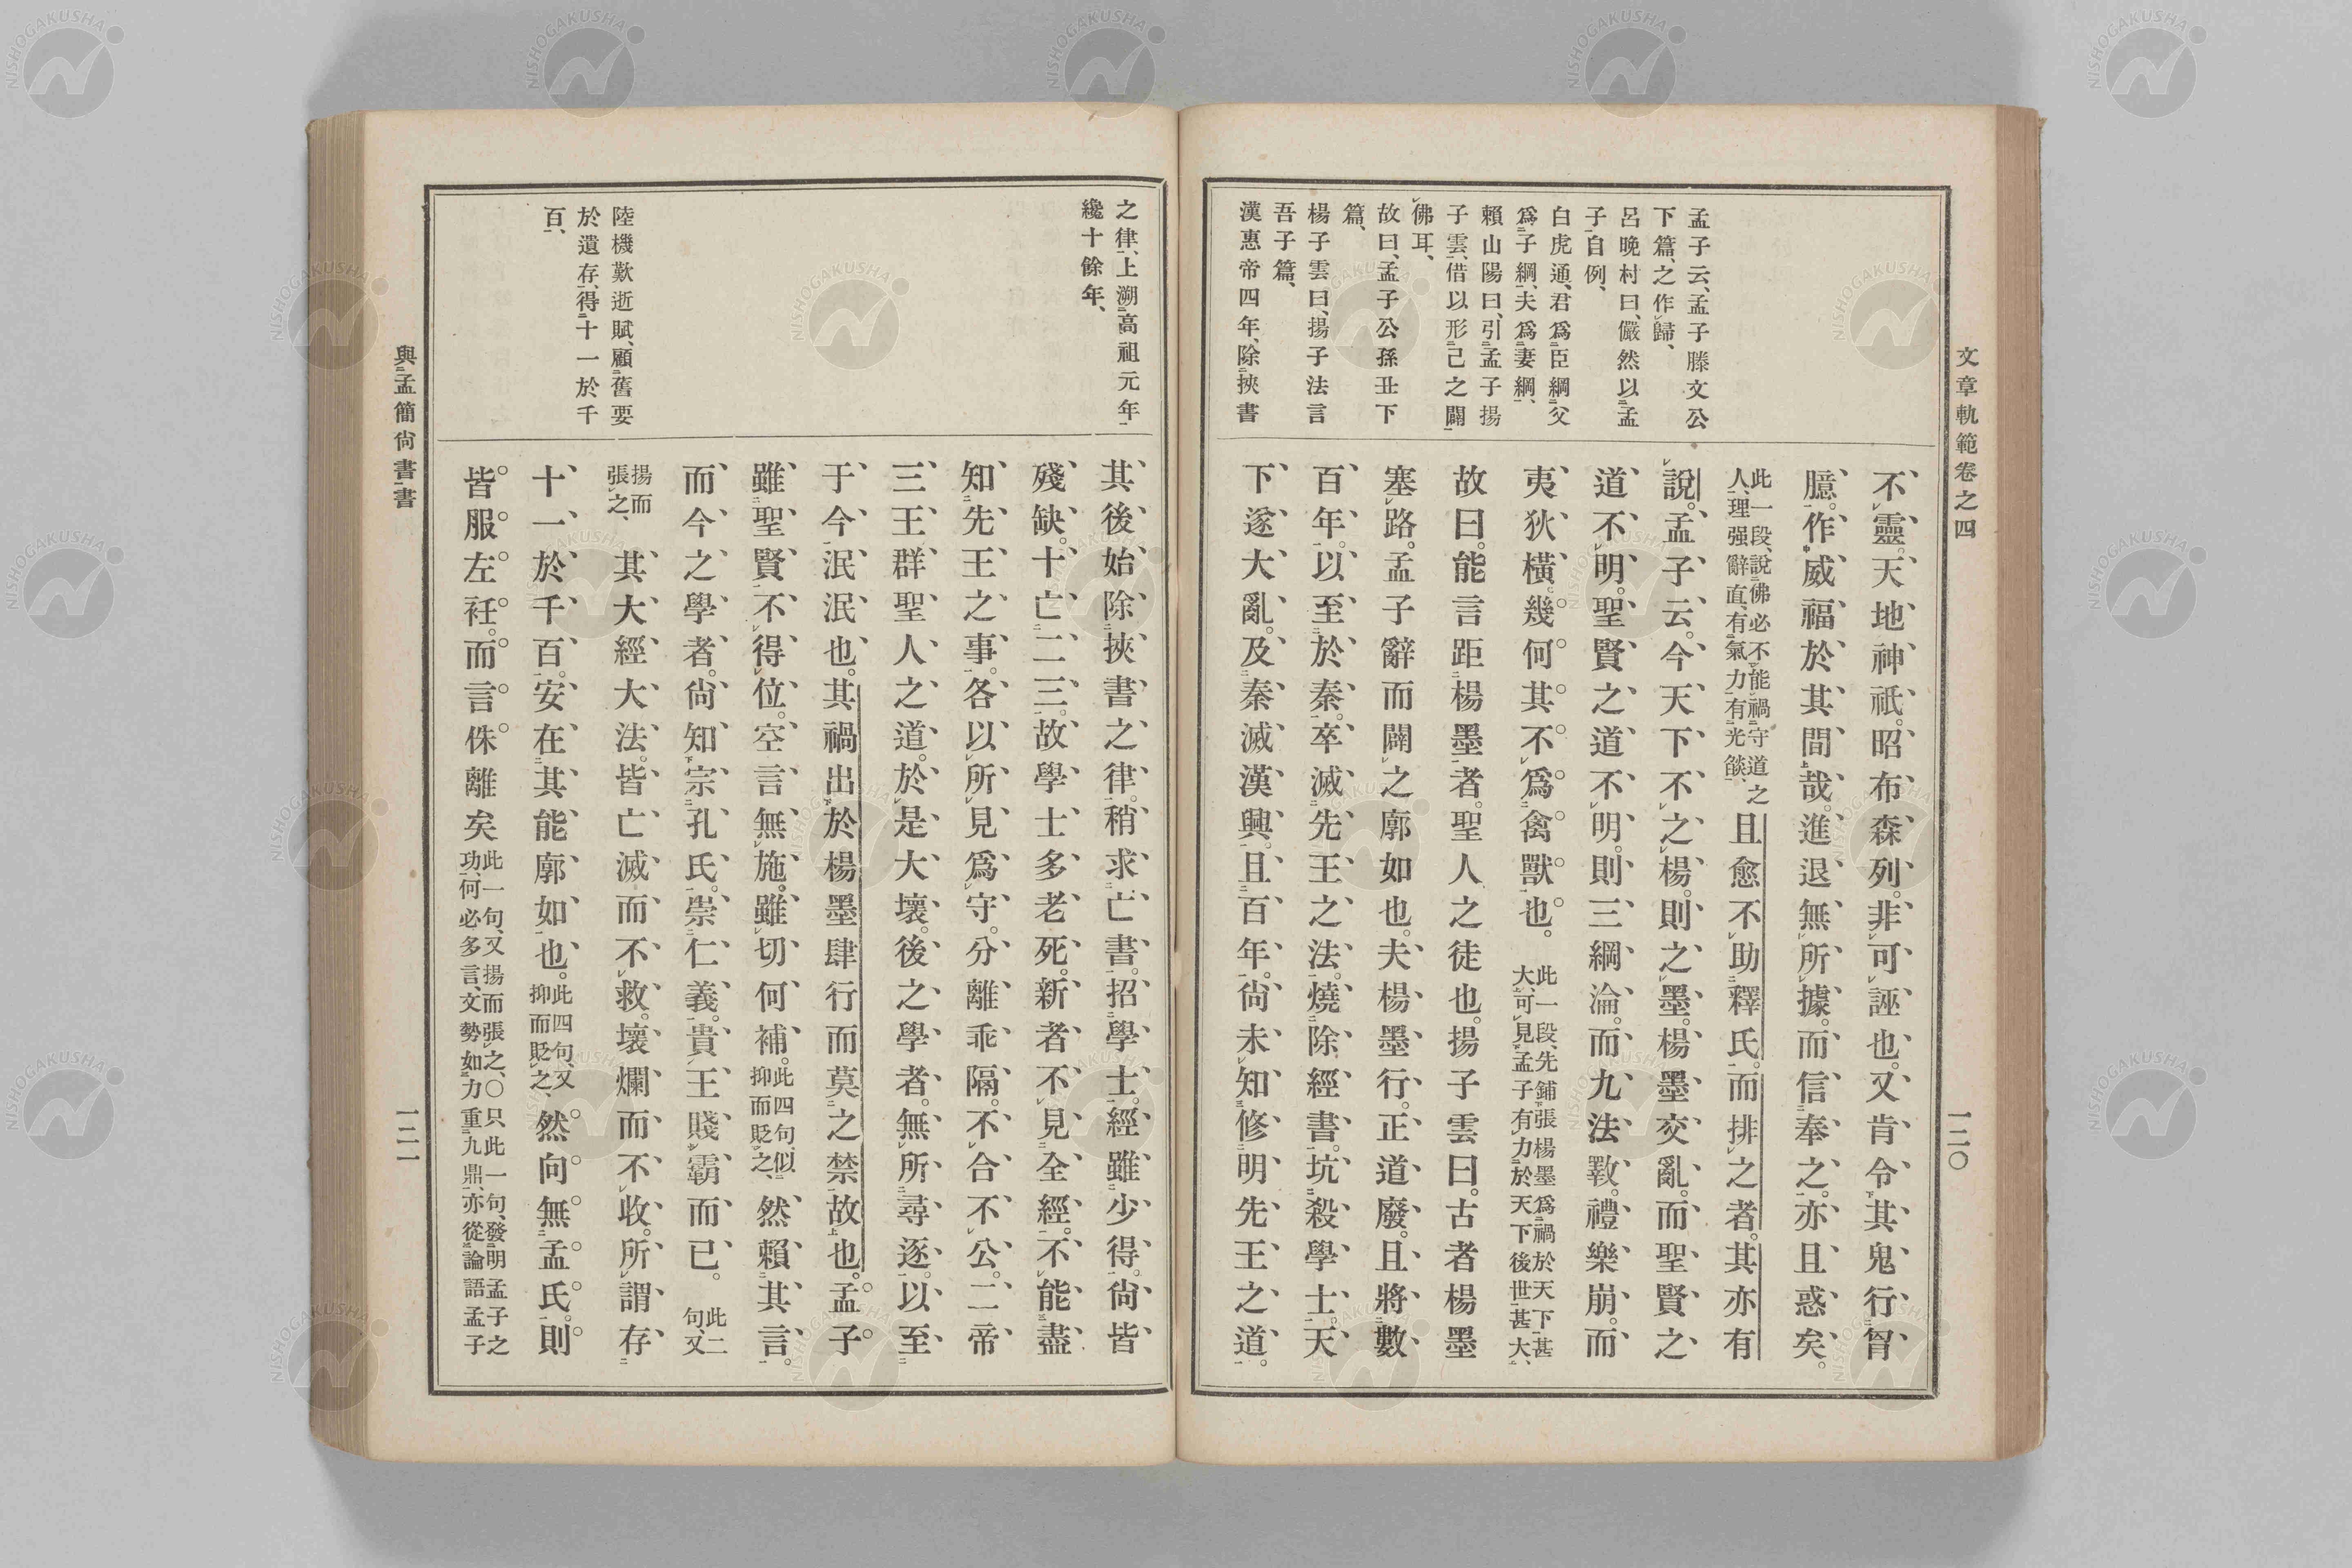 文章軌範卷之四
一二〇
孟子云、孟子滕文公
下篇、之作歸、
呂晩村曰、儼然以孟
子自例、
白虎通、君爲臣綱、父
爲子綱、夫爲妻綱、
賴山陽曰、引孟子揚
子雲、借以形己之闢
佛耳、
故曰、孟子公孫丑下
篇、
楊子雲曰、揚子法言
吾子篇、
漢惠帝四年、除挾書
不靈。天地神祇。昭布森列。非可誣也。又肯令其鬼行胷
臆。作威福於其間哉。進退無所據。而信奉之。亦且惑矣。
此一段、說佛必不能禍守道之
人、理强辭直、有氣力、有光燄、
且愈不助釋氏。而排之者。其亦有
說。孟子云。今天下不之楊。則之墨。楊墨交亂。而聖賢之
道不明。聖賢之道不明。則三綱淪。而九法斁。禮樂崩。而
夷狄橫。幾何其不爲禽獸也。
此一段、先鋪張楊墨爲禍於天下甚
大、可見孟子有力於天下後世甚大、
故曰。能言距楊墨者。聖人之徒也。揚子雲曰。古者楊墨
塞路。孟子辭而闢之廓如也。夫楊墨行。正道廢。且將數
百年。以至於秦。卒滅先王之法。燒除經書。坑殺學士。天
下遂大亂。及秦滅漢興。且百年。尙未知修明先王之道。
之律、上溯高祖元年
纔十餘年、
陸機歎逝賦、顧舊要
於遺存、得十一於千
百、
其後始除挾書之律。稍求亡書。招學士。經雖少得。尙皆
殘缺。十亡二三。故學士多老死。新者不見全經。不能盡
知先王之事。各以所見爲守。分離乖隔。不合不公。二帝
三王群聖人之道。於是大壞。後之學者。無所尋逐。以至
于今泯泯也。其禍出於楊墨肆行而莫之禁故也。孟子
雖聖賢。不得位。空言無施。雖切何補。
此四句、似
抑而貶之、
然賴其言。
而今之學者。尙知宗孔氏。崇仁義。貴王賤霸而已。
此二
句、又
揚而
張之、
其大經大法。皆亡滅而不救。壞爛而不收。所謂存
十一於千百。安在其能廓如也。
此四句、又
抑而貶之、
然向無孟氏。則
皆服左衽。而言侏離矣
此一句、又揚而張之、〇只此一句、發明孟子之
功、何必多言、文勢如力重九鼎、亦從論語孟子
與孟簡尙書書
一二一